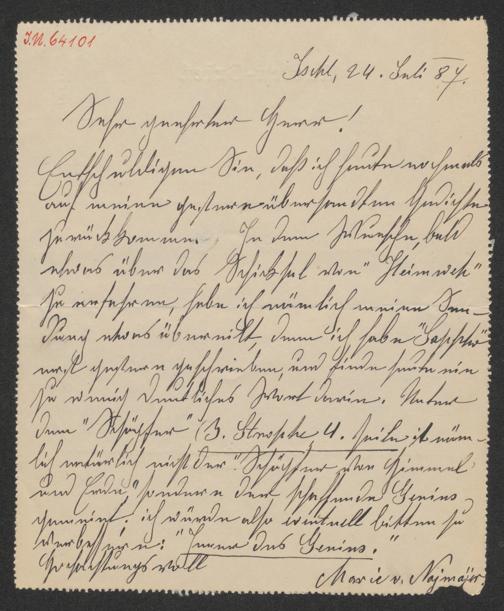 J.N. 64101
Ischl, 24. Juli 87.
Sehr geehrter Herr!
Entschuldigen Sie, daß ich heute nochmals
auf meine gestern übersandten Gedichte
zurückkomme. In dem Wunsche, bald
etwas über das Schicksal von "Heimweh"
zu erfahren, habe ich nämlich meine Sen-
dung etwas übereilt, denn ich habe "Sappho"
erst gestern geschrieben, und finde heute ein
zu wenig deutliches Wort darin. Unter
dem "Schöpfer" (3. Strophe 4. Zeile ist näm-
lich natürlich nicht der "Schöpfer von Himmel
und Erde," sondern der schaffende Genius
gemeint. ich würde also eventuell bitten zu
verbessern: " des Genius."
Hochachtungsvoll
Marie v. Najmájer